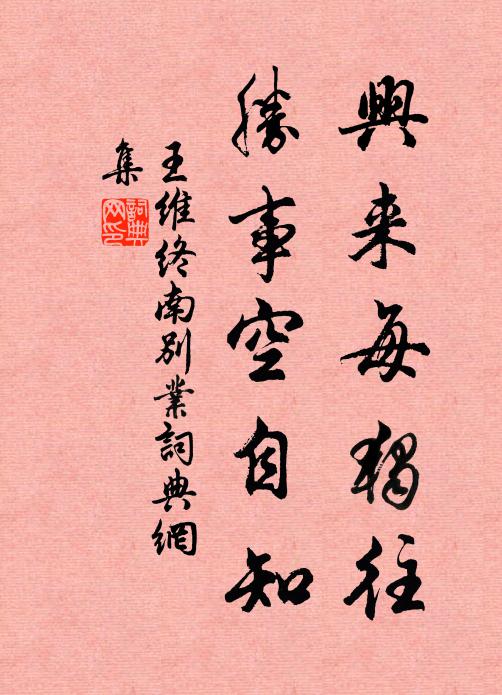 興来每獨往
勝事空自知
王維終南別業詞典網
集
詞典
网印